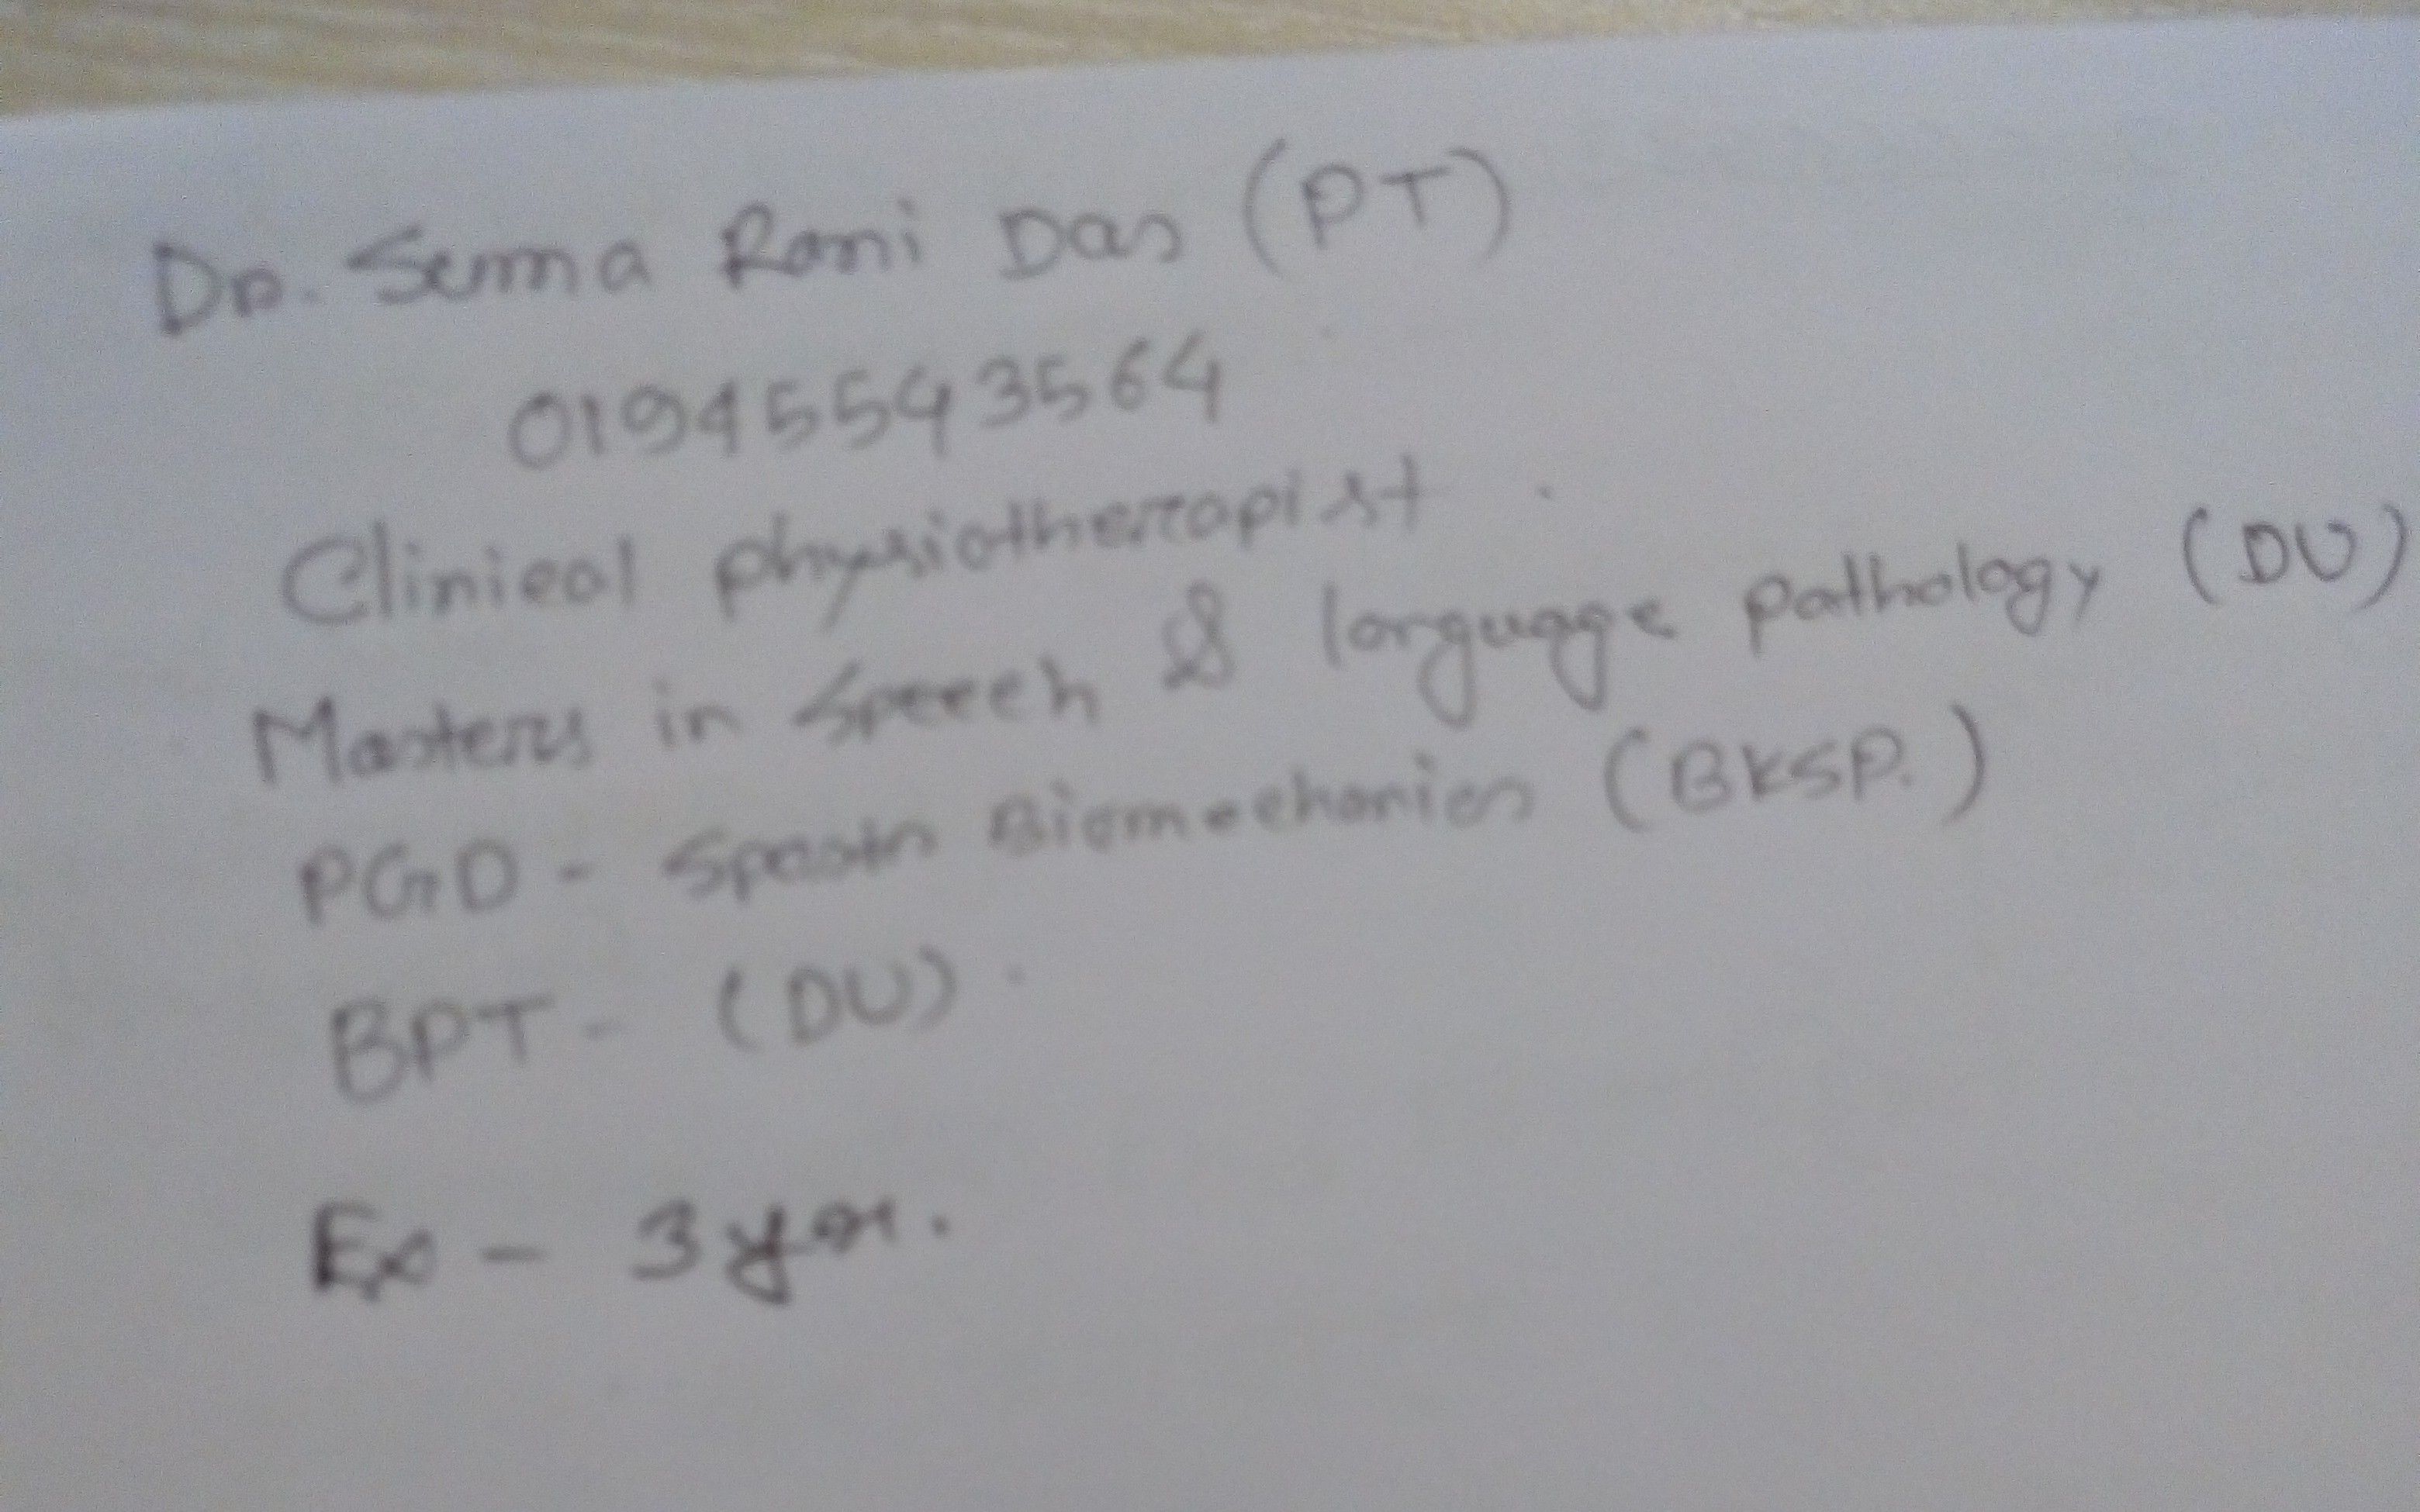 Dr. Suma Rani Das (PT)
01945543564
Clinical physiotherapist
Masters in Speech & language pathology (DU)
PGD - Sports Biomechanics (BKSP.)
BPT - (DU).
Ex - 3 yr.